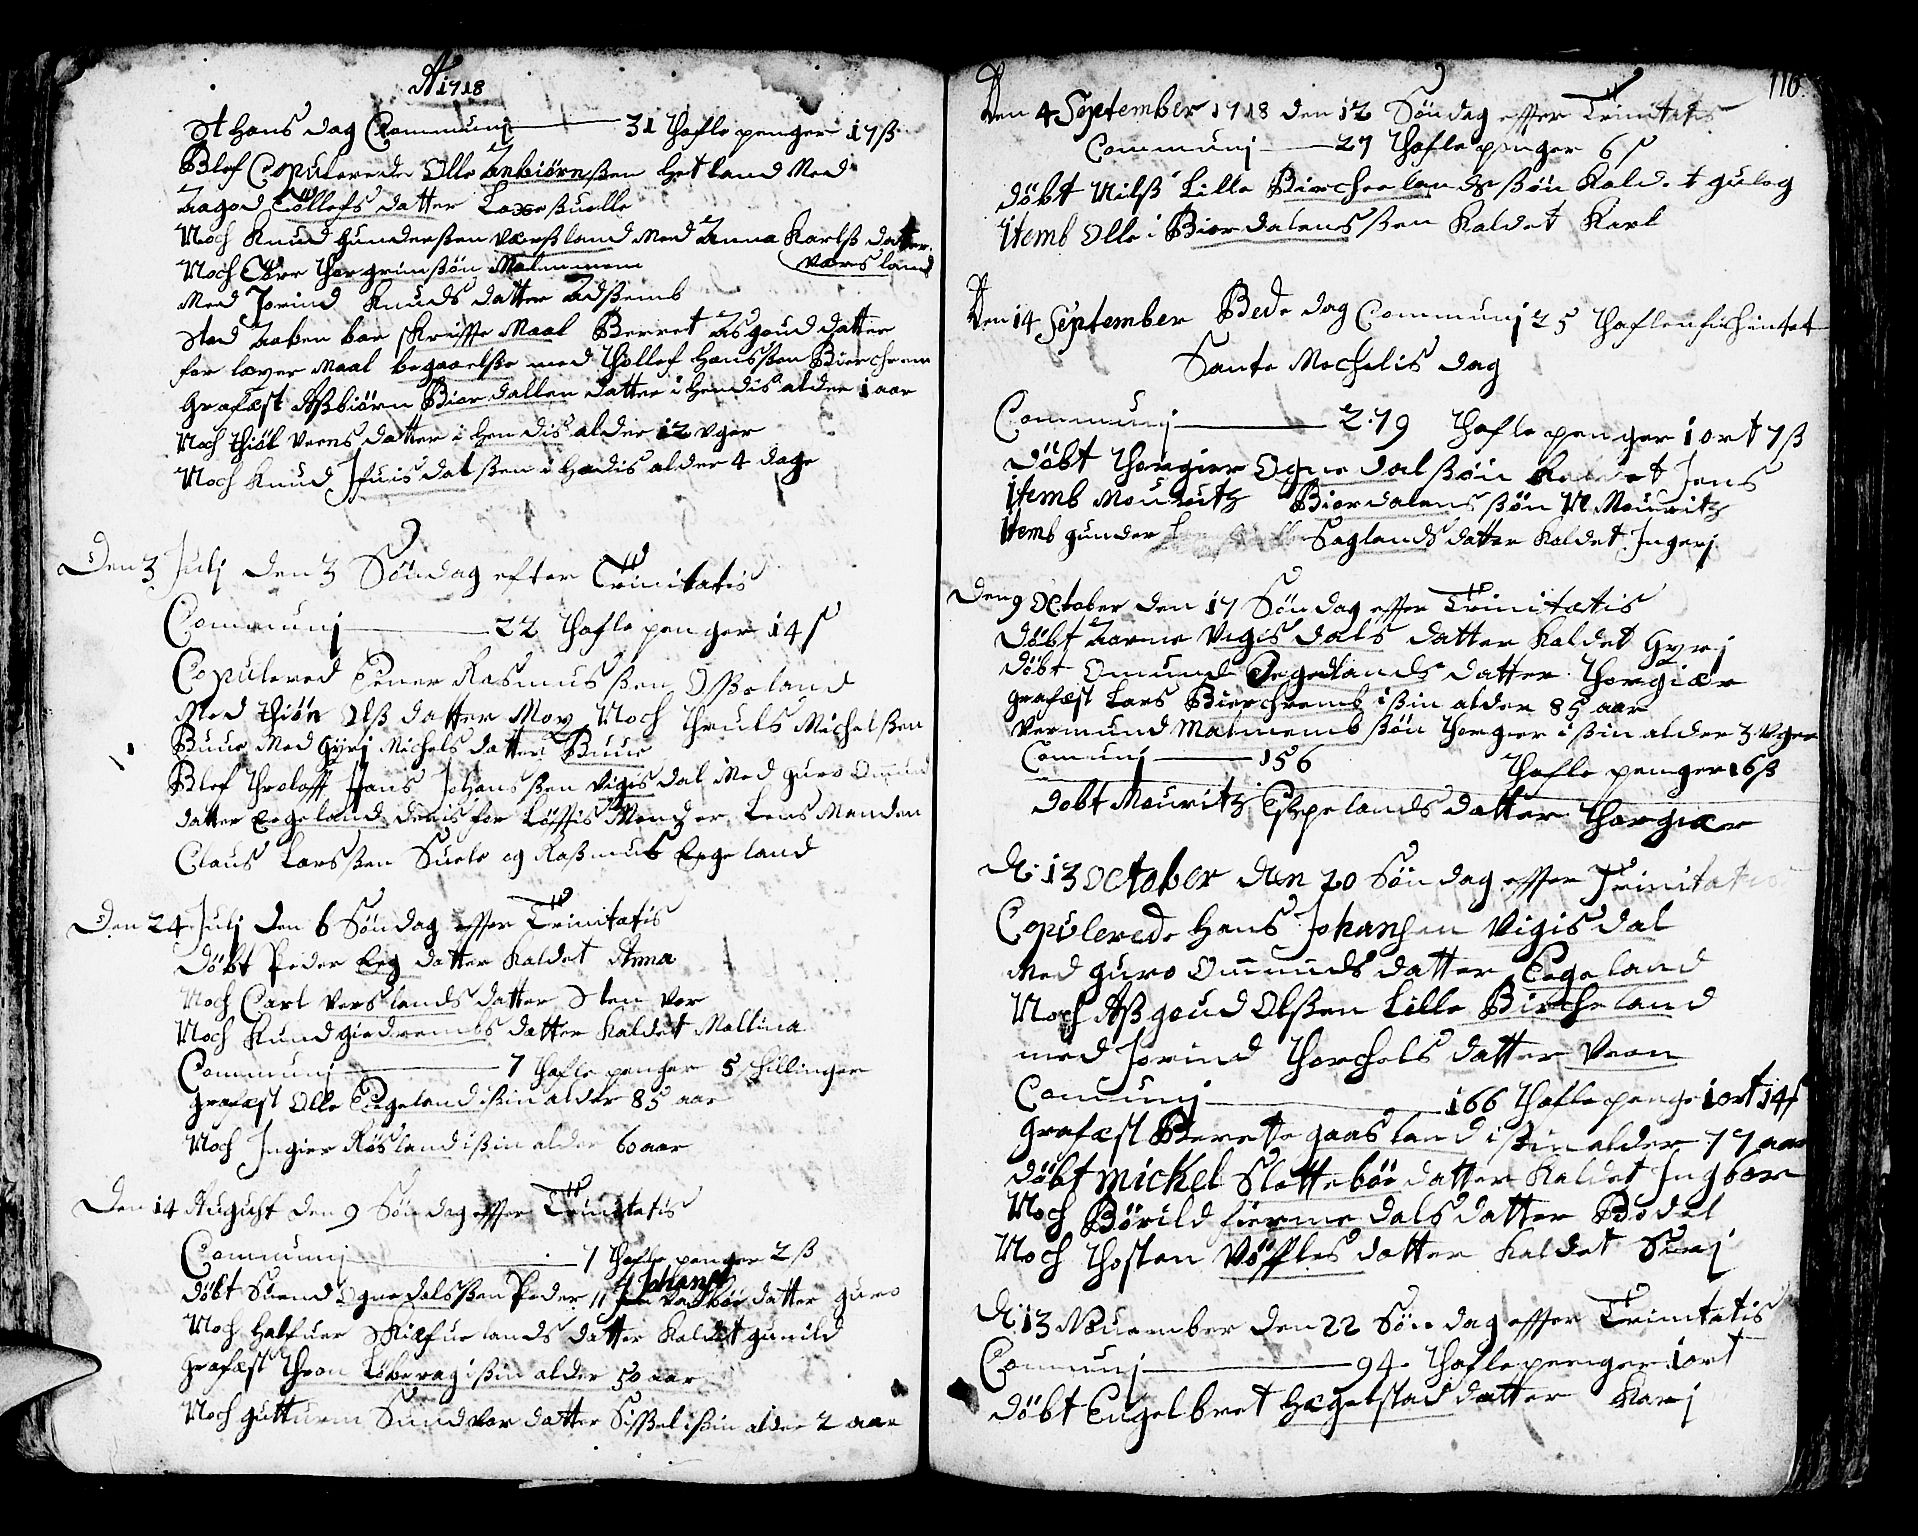 A 1718
St Hans dag Communi 31 Thafle penger 17 ß
Blef Copulerede Olle Anbiørnßen Hetland Med
Aagod Tollefs datter Laxesuelle
Noch Knud Gunderßen Værßland Med Anna Karls datter
Værsland
Noch Thorgrimßøn Malmmem
Med Jorind Knuds datter Adßemb
Stod Aaben bar skriffte Maal Berret Asgoud datter
for læger Maal begaaelße med Thollef Hansßen Bierchrem
Grafæst Aßbiørn Bierdallen datter i Hendis alder 1 aar
Noch Thiøl Veens datter i Hendis alder 12 Vger
Noch Knud Ifuisdalßen i Hendis alder 4 dage
Den 3 Julj den 3 Søndag efter Trinitatis
Communj 22 Thafle penger 14 s
Copulered Einer Rasmusßen Oßeland
Med Thiøn Olß datter Moy Noch Thruls Michelßen
Buue Med Gyrj Michels datter Buue
Blef Throloff Hans Johansßen Vigisdal Med Guro Omund
datter Eegeland denis for Løfftis Mend er Lens Manden
Claus Larsßen Suele og Raßmus Eegeland
Den 24 Julj den 6 Søndag effter Trinitatis
Døbt Peder Eeg datter Kaldet Anna
Noch Carl Verslands datter Sten Vor
Noch Knud Giedrembs datter Kaldet Mallina
Communj 7 Thafle pencher 5 skillinger
Grafæst Olle Eigeland i ßin alder 85 aar
Noch Ingier Røsland i ßin alder 60 aar
Den 14 August den 9 Søndag effter Trinitatis
Communj 7 Thafle penger 2 ß
Johans
Døbt Suend Ognedalsßen Peder 11 Vasbøe datter Guro
Noch Halfuer Skiæfuelands datter Kaldet Gunild
Grafæst Thron Løberag i ßin alder 50 aar
Noch Gutturm Sundvor datter Sißel i ßin alder 2 aar
116
Den 4 September 1718 den 12 Søndag effter Trinitatis
Communj 27 Thafle penger 6 s
Døbt Nilß Lille Biercheelandsßøn Kaldet Gulog
Itemb Olle i Bierdalensßen Kaldet Karl
Den 14 September Bede dag Communj 25 Thaflen fich intet
Sante Mechelis dag
Communj 279 Thafle penger 1 ort 7 ß
Døbt Thorgier Ognedalßøn Kaldet Jens
Itemb Mouritz Bierdalensßøn N. Mouritz
Itemb Gunder Saglands datter Kaldet Ingerj
Den 9 October den 17 Søndag effter Trinitatis
Døbt Aarne Vigisdals datter Kaldet Gyrj
Døbt Omund Eegelands datter Thorgiær
Grafæst Lars Bierchremb i ßin alder 85 aar
Vermund Malmembßøn Thorgier i ßin alder 3 Vger
Comunj 156 Thafle penger 16 ß
Dobt Mouritz Espelands datter Thorgiær
D. 13 October den 20 Søndag effter Trinitatis
Copulerede Hans Johansen Vigisdal
Med Guro Omunds datter Eegeland
Noch Aßgoud Olßen Lille Bircheland
med Jorind Thorchels datter Veen
Comunj 166 Thafle penge 1 ort 14 s
Grafæst Berette Gaasland i ßin alder 77 aar
Døbt Mickel Slettebøe datter Kaldet Ingbor
Noch Børild fiermedals datter Bodel
Noch Thosten Vøffles datter Kaldet Sirj
D. 13 Nouember den 22 Søndag effter Trinitatis
Comunj 94 Thafle penger 1 ort
Døbt Engelbret Hægelstad datter Karj